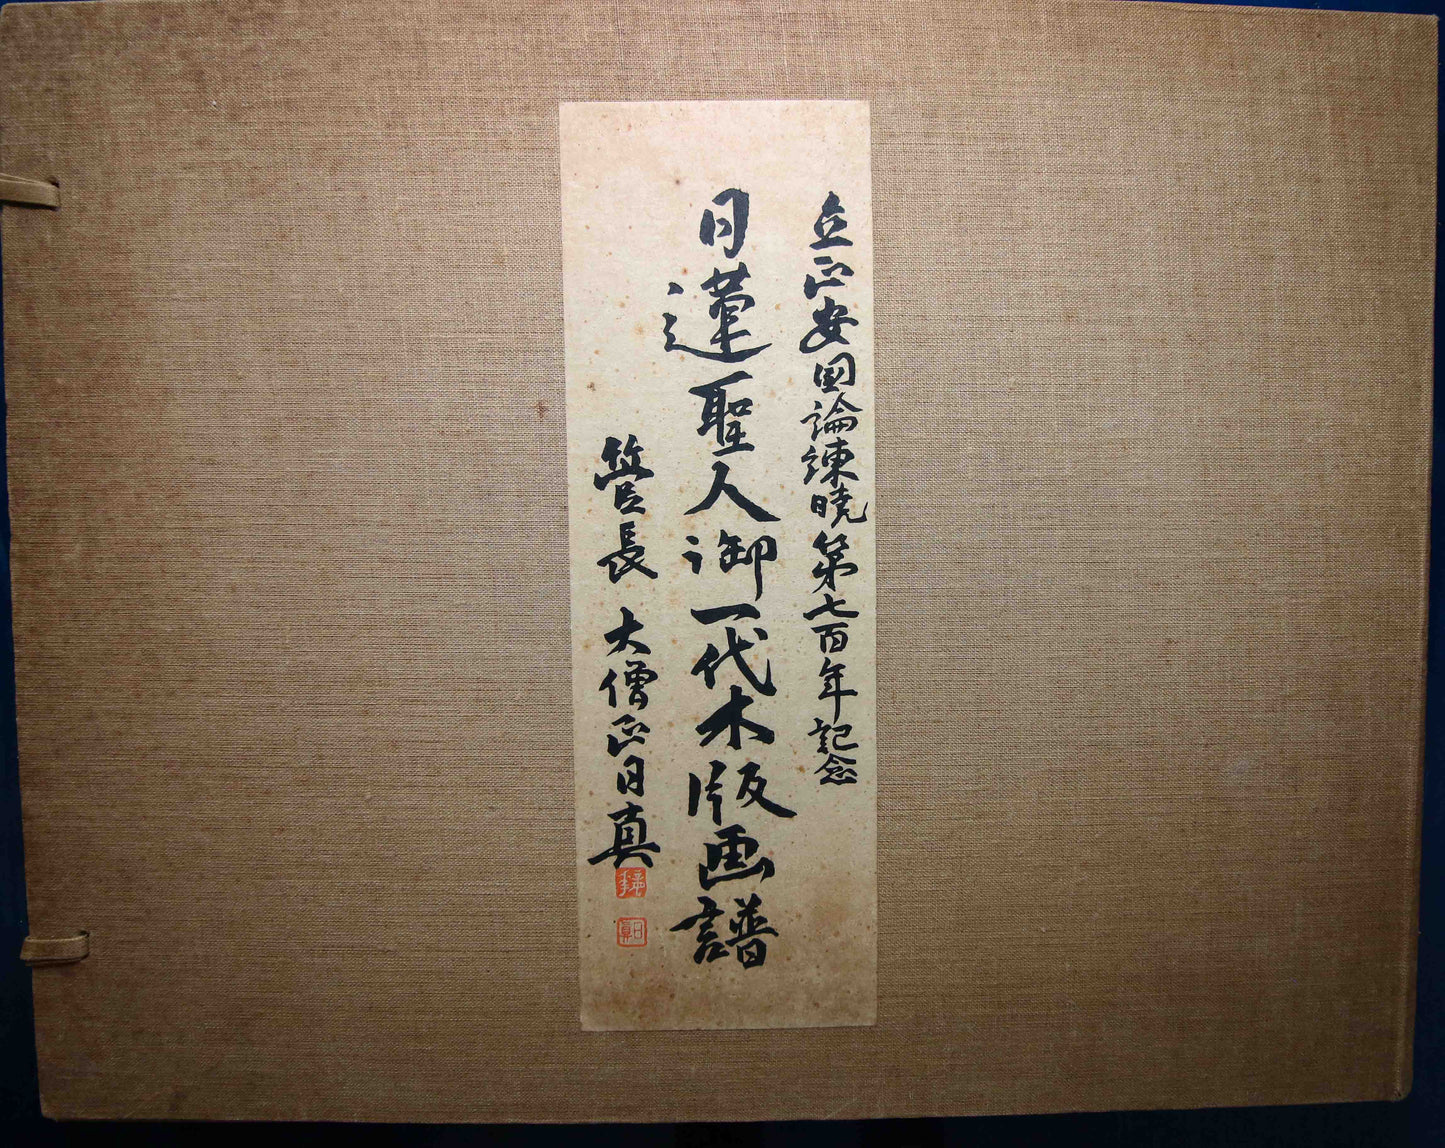 立正安国論諌暁第七百年記念
日蓮聖人御一代木版画譜
管長 大僧正日真
日真